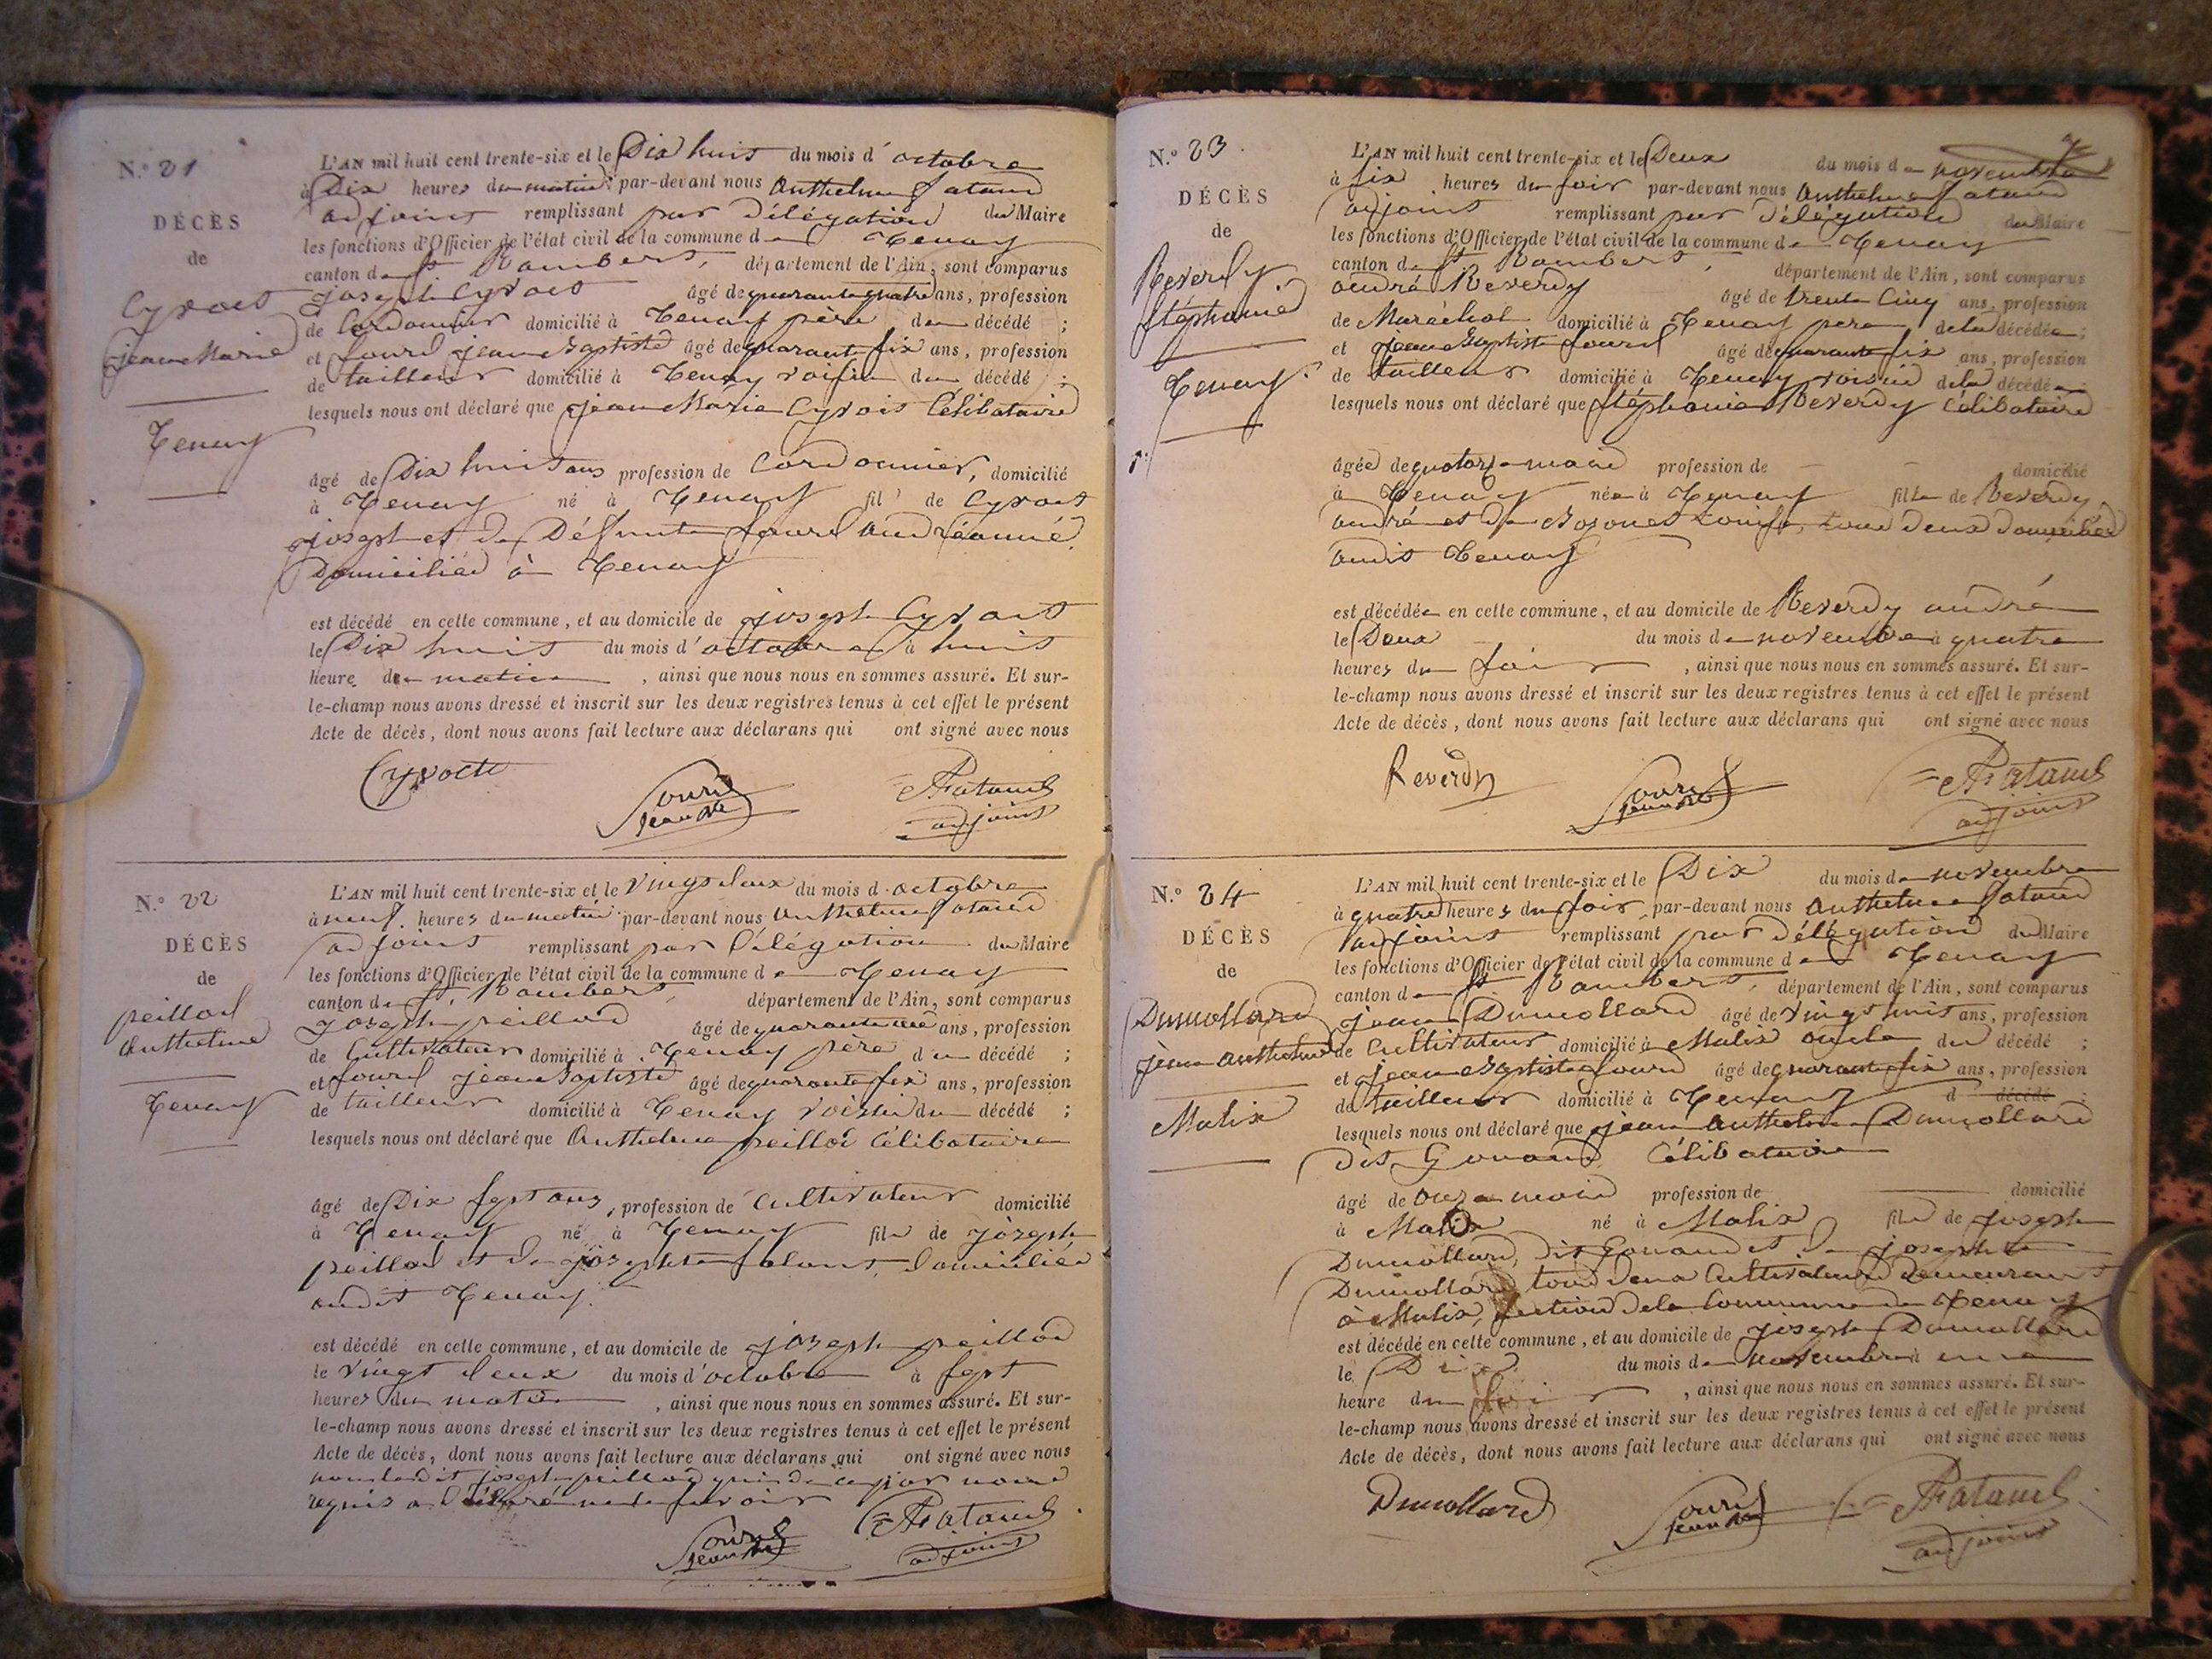 N.º 21
DÉCÈS
de
Cyvoct
jean Marie
Tenay
L'AN mil huit cent trente-six et le Dix huit du mois d'octobre
à Dix heures du matin par-devant nous Anthelme fatand
adjoint remplissant par Délégation du Maire
les fonctions d'Officier de l'état civil de la commune de Tenay
canton de St. Rambert, département de l'Ain, sont comparus
joseph Cyvoct âgé de quarante quatre ans, profession
de Cordonnier domicilié à Tenay père du décédé ;
et fourel jean Baptiste âgé de quarante six ans, profession
de tailleur domicilié à Tenay voisin du décédé ;
lesquels nous ont déclaré que jean Marie Cyvoct Célibataire
âgé de Dix huit ans profession de Cordonnier, domicilié
à Tenay né à Tenay fils de Cyvoct
joseph et de Défunte fourel
Domicilié à Tenay
est décédé en cette commune, et au domicile de joseph Cyvoct
le Dix huit du mois d'octobre à huit
heure du matin, ainsi que nous nous en sommes assuré. Et sur-
le-champ nous avons dressé et inscrit sur les deux registres tenus à cet effet le présent
Acte de décès, dont nous avons fait lecture aux déclarans qui ont signé avec nous
Cyvoct
fourel
jean Bte
A Fatand
adjoint
N.º 22
DÉCÈS
de
peillod
Anthelme
Tenay
L'AN mil huit cent trente-six et le Vingt deux du mois d'octobre
à neuf heures du matin par-devant nous Anthelme fatand
adjoint remplissant par Délégation du Maire
les fonctions d'Officier de l'état civil de la commune de Tenay
canton de St. Rambert, département de l'Ain, sont comparus
joseph peillod âgé de quarante ans, profession
de Cultivateur domicilié à Tenay père du décédé ;
et fourel jean Baptiste âgé de quarante six ans, profession
de tailleur domicilié à Tenay voisin du décédé ;
lesquels nous ont déclaré que Anthelme peillod Célibataire
âgé de Dix sept ans, profession de Cultivateur domicilié
à Tenay né à Tenay fils de joseph
peillod et de josephte domiciliés
audit Tenay.
est décédé en cette commune, et au domicile de joseph peillod
le vingt deux du mois d'octobre à sept
heures du matin, ainsi que nous nous en sommes assuré. Et sur-
le-champ nous avons dressé et inscrit sur les deux registres tenus à cet effet le présent
Acte de décès, dont nous avons fait lecture aux déclarans qui ont signé avec nous
non ledit joseph peillod qui de ce par nous
requis a déclaré ne le savoir
fourel
jean Bte
A Fatand
adjoint
7
N.º 23
DÉCÈS
de
Reverdy
Stéphanie
Tenay
L'AN mil huit cent trente-six et le Deux du mois de novembre
à six heures du soir par-devant nous Anthelme fatand
adjoint remplissant par Délégation du Maire
les fonctions d'Officier de l'état civil de la commune de Tenay
canton de St. Rambert, département de l'Ain, sont comparus
andré Reverdy âgé de trente Cinq ans, profession
de Maréchal domicilié à Tenay père de la décédée ;
et jean Baptiste fourel âgé de quarante six ans, profession
de tailleur domicilié à Tenay voisin de la décédée
lesquels nous ont déclaré que Stéphanie Reverdy Célibataire
âgée de quatorze mois profession de domicilié
à Tenay née à Tenay fille de Reverdy
andré et de Bozonet Louise, tous deux domiciliés
audit Tenay
est décédée en cette commune, et au domicile de Reverdy andré
le Deux du mois de novembre à quatre
heures du soir, ainsi que nous nous en sommes assuré. Et sur-
le-champ nous avons dressé et inscrit sur les deux registres tenus à cet effet le présent
Acte de décès, dont nous avons fait lecture aux déclarans qui ont signé avec nous
Reverdy
fourel
jean Bte
A Fatand
adjoint
N.º 24
DÉCÈS
de
Dumollard
jean Anthelme
Malix
L'AN mil huit cent trente-six et le Dix du mois de novembre
à quatre heures du soir par-devant nous Anthelme fatand
adjoint remplissant par Délégation du Maire
les fonctions d'Officier de l'état civil de la commune de Tenay
canton de St. Rambert, département de l'Ain, sont comparus
jean Dumollard âgé de vingt huit ans, profession
de Cultivateur domicilié à Malix oncle du décédé ;
et jean Baptiste fourel âgé de quarante six ans, profession
de tailleur domicilié à Tenay d décédé
lesquels nous ont déclaré que jean Anthelme Dumollard
dit Gonand Célibataire
âgé de onze mois profession de domicilié
à Malix né à Malix fils de joseph
Dumollard, dit Gonand et de josephte
Dumollard tous deux Cultivateurs demeurant
à Malix, section de la Commune de Tenay
est décédé en cette commune, et au domicile de joseph Dumollard
le Dix du mois de novembre à une
heure du soir, ainsi que nous nous en sommes assuré. Et sur-
le-champ nous avons dressé et inscrit sur les deux registres tenus à cet effet le présent
Acte de décès, dont nous avons fait lecture aux déclarans qui ont signé avec nous
Dumollard
fourel
jean Bte
A Fatand
adjoint